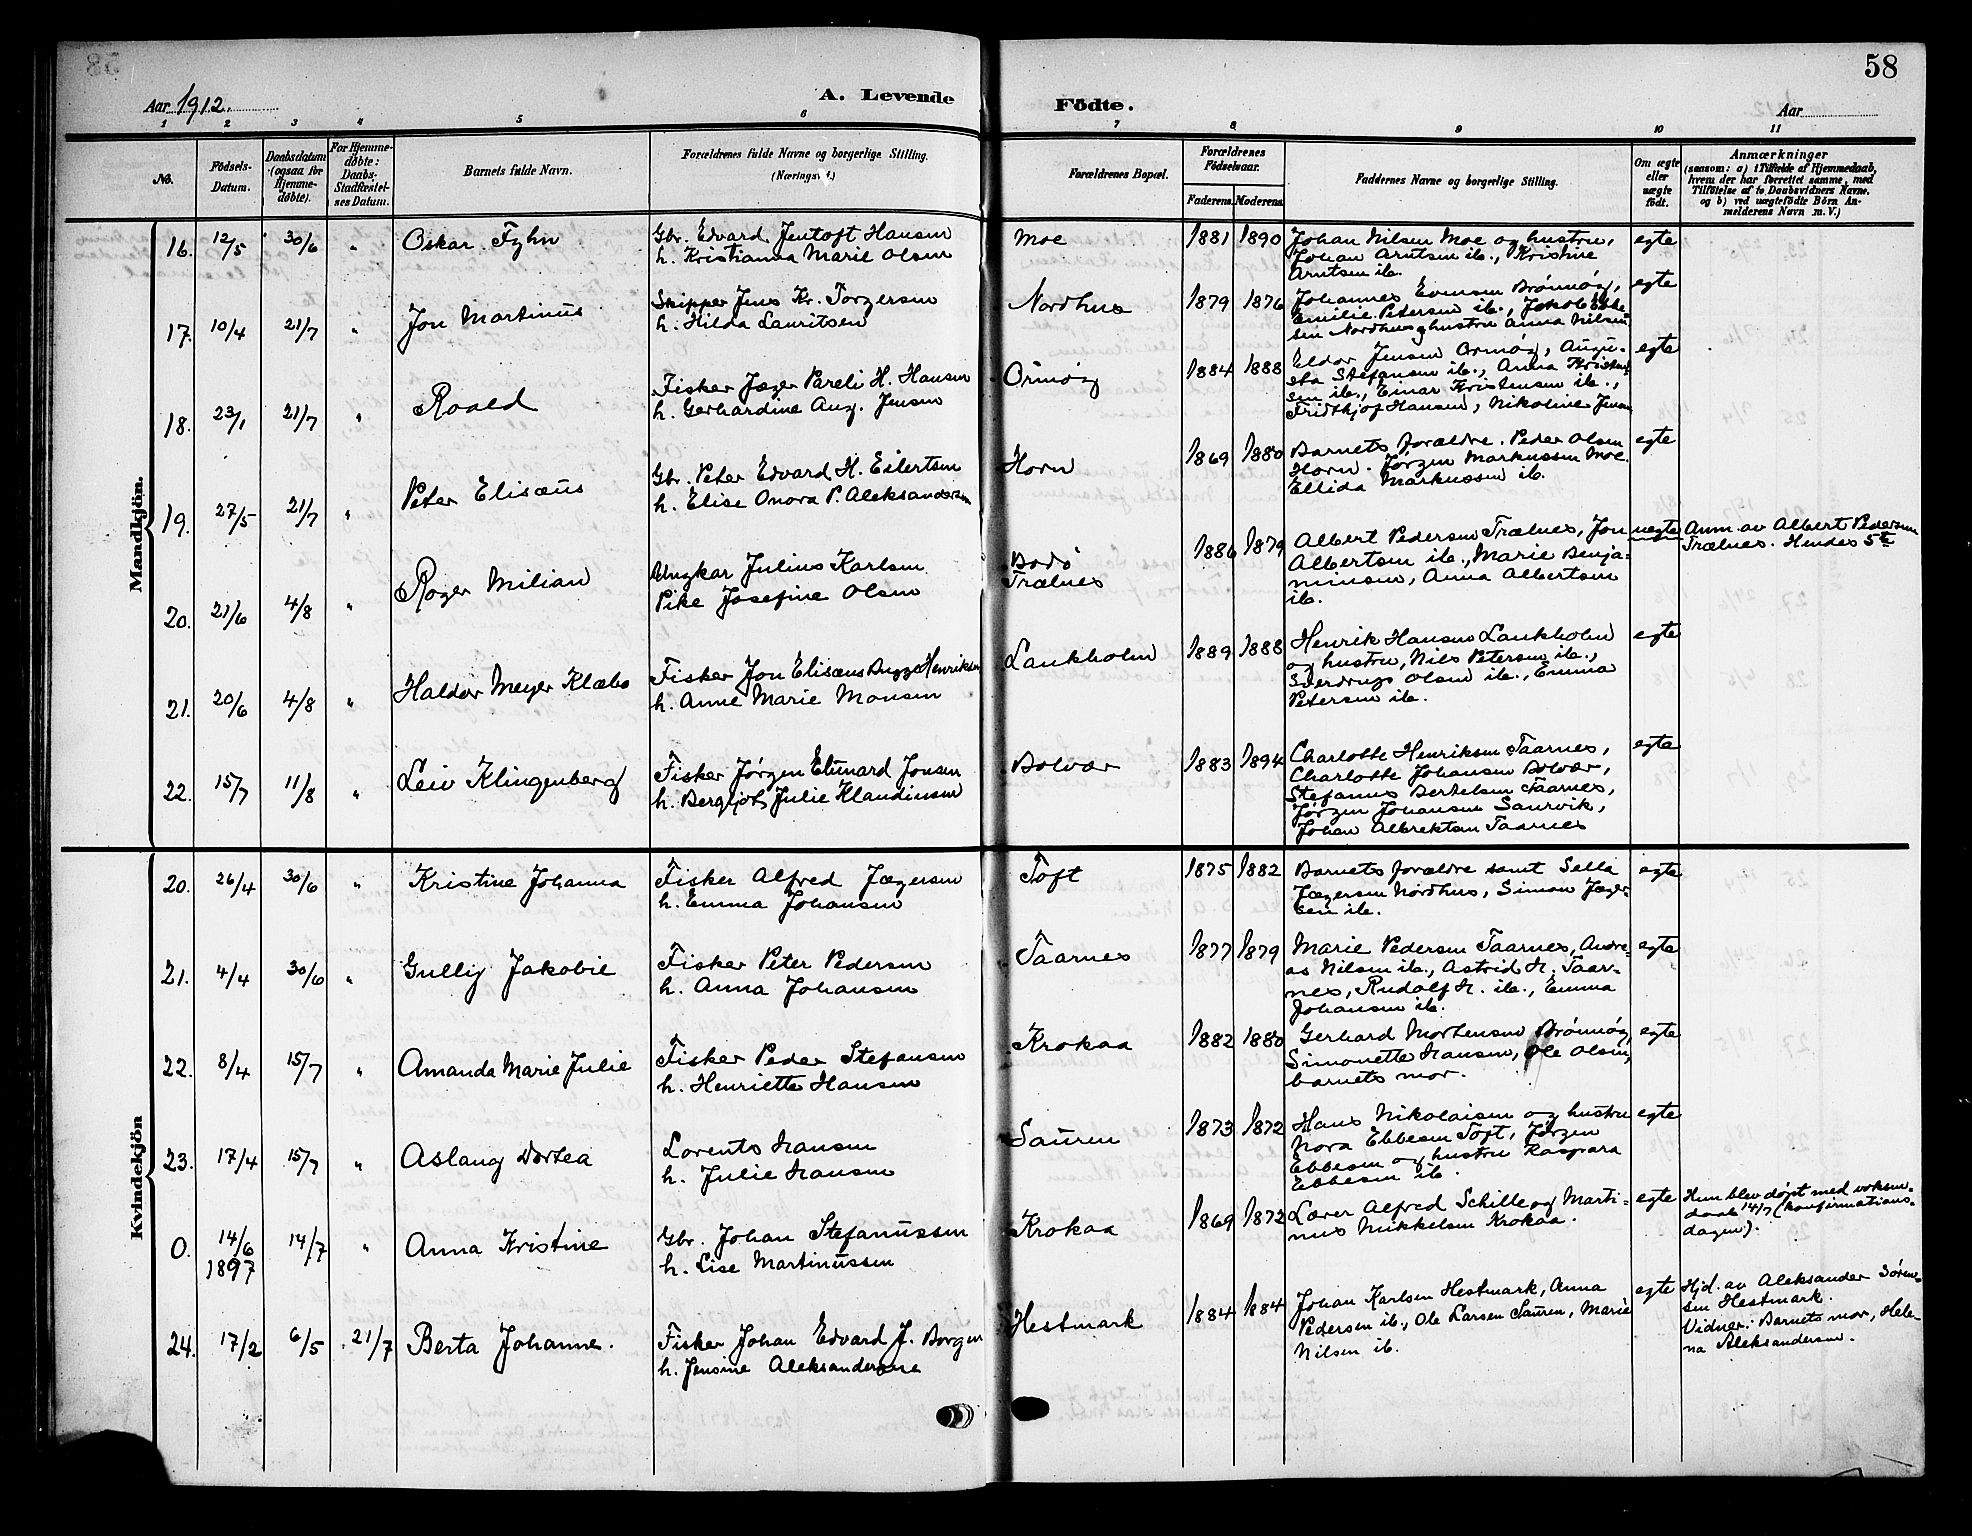 58
Aar 1912.
A. Levende
Födte.
Aar
1 2 3 4 5 6 7 8 9 10 11
No.
Födsels-
Datum.
Daabsdatum
(ogsaa for
Hjemme-
døbte).
For Hjemme-
døbte:
Daabs-
Stadfæstel-
ses Datum.
Barnets fulde Navn.
Forældrenes fulde Navne og borgerlige Stilling.
(Næringsv.)
Forældrenes Bopæl.
Forældrenes
Födselsaar.
Faderens. Moderens.
Faddernes Navne og borgerlige Stilling.
Om ægte
eller
uægte
født.
Anmærkninger
(saasom: a) i Tilfælde af Hjemmedaab,
hvem der har forrettet samme, med
Tilföielse af to Daabsvidners Navne,
og b) ved uægtefödte Börn An-
melderens Navn m. V.)
Mandkjön.
16. 12/5 30/6 " Oskar Fyhn
Gbr. Edvard Jentoft Hansen
h. Kristianna Marie Olsen
Moe 1881 1890
Johan Nilsen Moe og hustru,
Johan Arntsen ib., Kristine
Arntsen ib.
egte
17. 10/4 21/7 " Jon Martinus
Skipper Jens Kr. Torgersen
h. Hilda Lauritsen
Nordhus 1879 1876
Johannes Evensen Brønnøy,
Emilie Petersen ib., Jakob Ebbe-
sen Nordhus og hustru Anna Nilsen
egte
18. 23/1 21/7 " Roald
Fisker Jæger Pareli H. Hansen
h. Gerhardine Aug. Jensen
Ormøy 1884 1888
Eldor Jensen Ormøy, Augu-
sta Stefansen ib., Anna Kristen-
sen ib., Einar Kristensen ib.,
Fridthjof Hansen, Nikoline Jensen
egte
19. 27/5 21/7 " Peter Elisæus
Gbr. Peter Edvard H. Eilertsen
h. Elise Onora P. Aleksandersen
Horn 1869 1880
Barnets forældre. Peder Olsen
Horn. Jørgen Markussen Moe.
Ellida Markussen ib.
egte
20. 21/6 4/8 " Roger Milian
Ungkar Julius Karlsen
Pike Josefine Olsen
Bodø
Trælnes
1886 1879
Albert Pedersen Trælnes, Jon
Albertsen ib., Marie Benja-
minsen, Anna Albertsen
ib.
uegte
Anm. av Albert Pedersen
Trælnes. Hendes 5te
21. 20/6 4/8 " Haldor Meyer Klæbo
Fisker Jon Elisæus Bugge Henriksen
h. Anne Marie Monsen
Lankholm 1889 1888
Henrik Hansen Lankholm
og hustru, Nils Petersen ib.,
Sverdrup Olsen ib., Emma
Petersen ib.
egte
22. 15/7 11/8 " Leiv Klingenberg
Fisker Jørgen Edvard Jonsen
h. Bergljot Julie Klaudiussen
Bolvær 1883 1894
Charlotte Henriksen Taarnes,
Charlotte Johansen Bolvær,
Stefanus Bertelsen Taarnes,
Jørgen Johansen Saurvik,
Johan Albrektsen Taarnes
egte
Kvindekjön
20. 26/4 30/6 " Kristine Johanna
Fisker Alfred Jægersen
h. Emma Johansen
Toft 1875 1882
Barnets forældre samt Sella
Jægersen Nordhus, Simon Jæger-
sen ib.
egte
21. 4/4 30/6 " Gullig Jakobie
Fisker Peter Pedersen
h. Anna Johansen
Taarnes 1877 1879
Marie Pedersen Taarnes, Andre-
as Nilsen ib., Astrid H. Taar-
nes, Rudolf H. ib., Emma
Johansen ib.
egte
22. 8/4 15/7 " Amanda Marie Julie
Fisker Peder Stefansen
h. Henriette Hansen
Krokaa 1882 1880
Gerhard Mortensen Brønnøy,
Simonette Hansen, Ole Olsen,
barnets mor.
egte
23. 17/4 15/7 " Aslaug Dortea
Lorents Hansen
h. Julie Hansen
Sauren 1873 1872
Hans Nikolaisen og hustru
Nora Ebbesen Toft, Jørgen
Ebbesen og hustru Kaspara
Ebbesen ib.
egte
0. 14/6 1897 14/7 " Anna Kristine
Gbr. Johan Stefanussen
h. Lise Martinussen
Krokaa 1869 1872
Lærer Alfred Schille og Marti-
nus Mikkelsen Krokaa.
egte
Hun blev døpt med voksen-
daab 14/7 (konfirmations-
dagen).
24. 17/2 6/5 21/7 Berta Johanne.
Fisker Johan Edvard J. Borgen
h. Jensine Aleksandersen
Hestmark 1884 1884
Johan Karlsen Hestmark, Anna
Pedersen ib., Ole Larsen Sauren, Marie
Nilsen ib.
egte
Hjd. av Aleksander Søren-
sen Hestmark.
Vidner: Barnets mor, Hele-
na Aleksandersen.